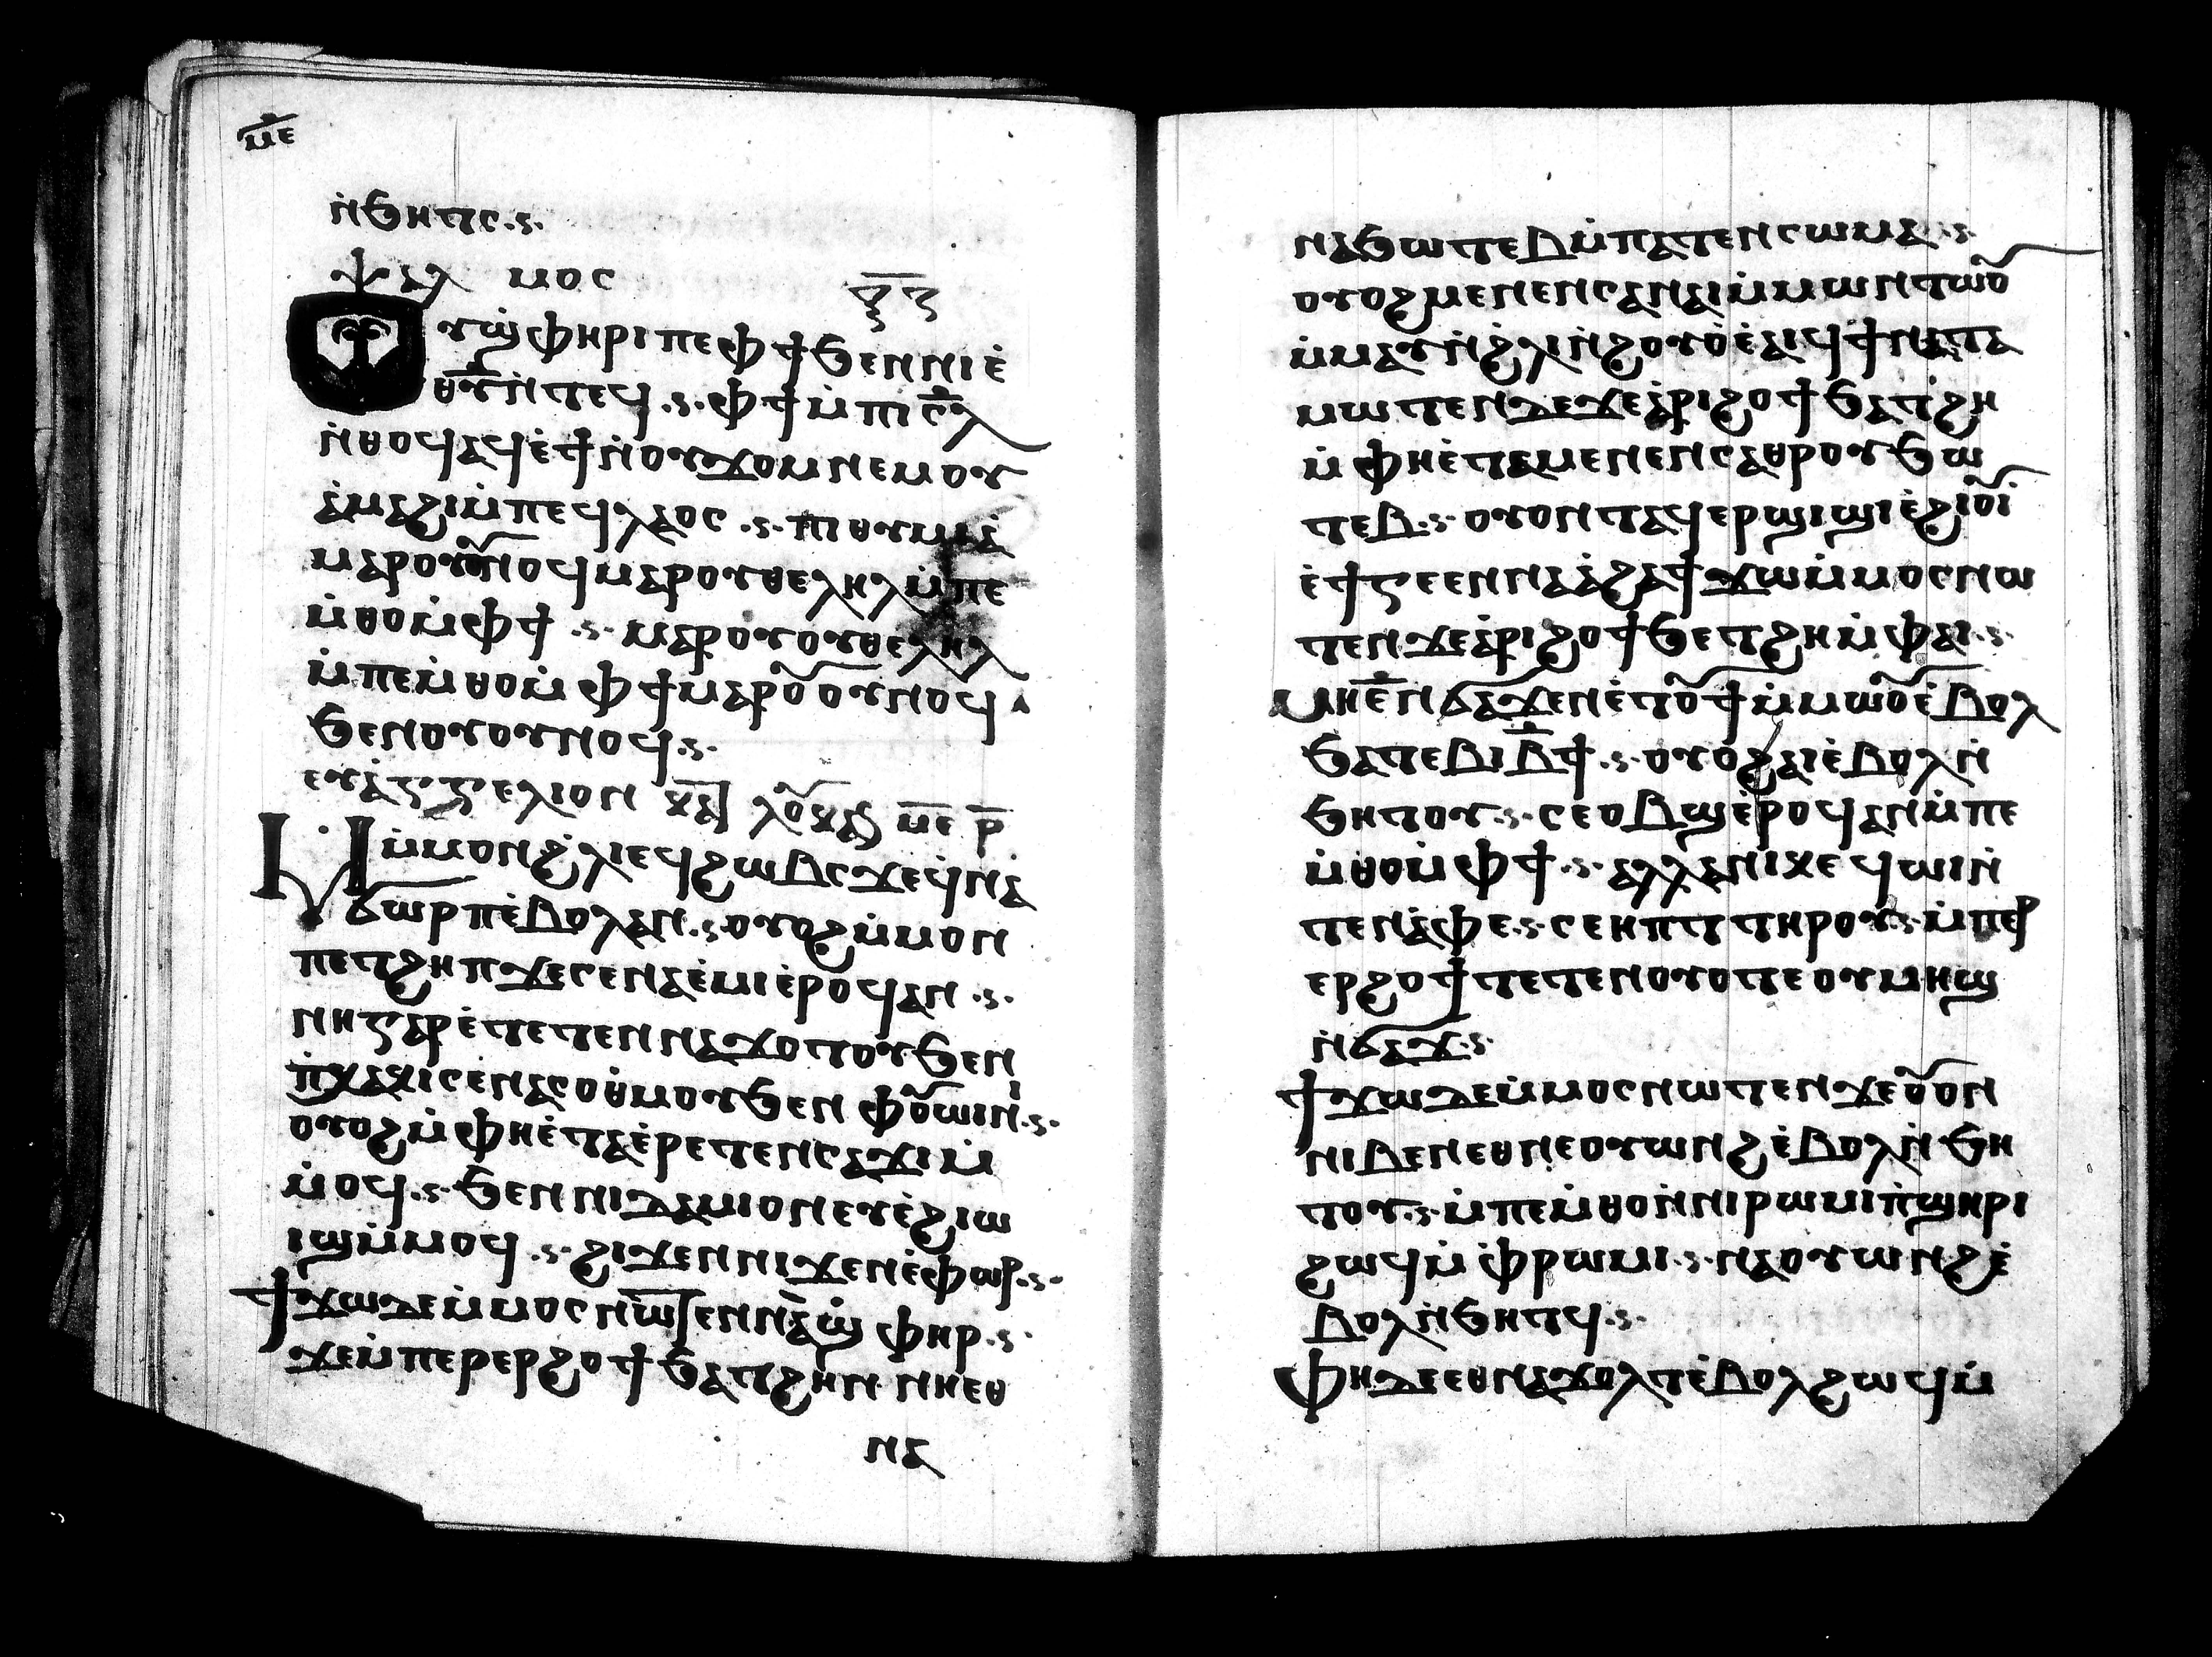 ⲙ̅ⲉ̅
ⲛ̀ϧⲏⲧⲥ ·ⲋ·
ⲯⲁⲗ ⲙⲟⲥ ⲝ̅ⲍ̅
ⲟⲩϣⲫⲏⲣⲓ ⲡⲉ ⲫϯ ϧⲉⲛ ⲛⲓⲉ̀
ⲑⲩ̅ ⲛ̀ⲧⲉϥ ·ⲋ· ⲫϯ ⲙ̀ⲡⲓⲥ̅ⲗ
ⲛ̀ⲑⲟϥ ⲁϥⲉ̀ϯ ⲛ̀ⲟⲩϫⲟⲙ ⲛⲉⲙ ⲟⲩ
ⲁ̀ⲙⲁϩⲓ ⲙ̀ⲡⲉϥⲗⲁⲟⲥ ·ⲋ· ⲛⲓⲑⲩⲙⲁ̀
ⲙⲁⲣⲟⲩⲟⲩⲛⲟϥ ⲙⲁⲣⲟⲩⲑⲉⲗⲏⲗ ⲙ̀ⲡⲉ
ⲙ̀ⲑⲟ ⲙ̀ⲫϯ ·ⲋ· ⲙⲁⲣⲟⲩⲟⲩⲑⲉⲗⲏⲗ
ⲙ̀ⲡⲉⲙ̀ⲑⲟ ⲙ̀ⲫϯ ⲙⲁⲣⲟⲩⲟⲩⲛⲟϥ
ϧⲉⲛ ⲟⲩⲟⲩⲛⲟϥ ·ⲋ·
ⲉⲩⲁ̀ⲅⲅⲉⲗⲓⲟⲛ ⲕⲁ ⲗⲟⲩⲕⲁⲥ ⲙ̅ⲉ̅ ⲣ̅
ⲙ̀ⲙⲟⲛ ϩ̀ⲗⲓ ⲉϥϩⲱⲃⲥ ϫⲉ ϥ̀ⲛⲁ̀
ϭⲱⲣⲡ ⲉ̀ⲃⲟⲗ ⲁⲛ ·ⲋ· ⲟⲩⲟϩ ⲙ̀ⲙⲟⲛ
ⲡⲉⲧϩⲏⲡ ϫⲉ ⲥⲉⲛⲁⲉ̀ⲙⲓ ⲉ̀ⲣⲟϥ ⲁⲛ ·ⲋ·
ⲛⲏ ⲅⲁⲣ ⲉ̀ⲧⲉⲧⲉⲛⲛⲁϫⲟⲧⲟⲩ ϧⲉⲛ
ⲡ̀ⲭⲁⲕⲓ ⲥⲉⲛⲁⲥⲟⲑⲙⲟⲩ ϧⲉⲛ ⲫⲟⲩⲱⲓⲛⲓ ·ⲋ·
ⲟⲩⲟϩ ⲙ̀ⲫⲏ ⲉ̀ⲧⲁⲉ̀ⲣⲉⲧⲉⲛⲥⲁϫⲓ ⲙ̀
ⲙ̀ⲟϥ ·ⲋ· ϧⲉⲛ ⲛⲓⲧⲁⲙⲓⲟⲛ ⲉⲩⲉ̀ϩⲓⲱ
ⲓϣ ⲙ̀ⲙⲟϥ ·ⲋ· ϩⲓϫⲉⲛ ⲛⲓϫⲉⲛⲉ̀ⲫⲱⲣ ·ⲋ·
ϯϫⲱ ⲇⲉ ⲙ̀ⲙⲟⲥ ⲛⲱⲧⲉⲛ ⲛⲁ̀ϣⲫⲏⲣ ·ⲋ·
ϫⲉ ⲙ̀ⲡⲉⲣⲉⲣϩⲟϯ ϧⲁⲧϩⲏ ⲛ ⲛⲏⲉⲑ
ⲛⲁ
ⲛⲁϧⲱⲧⲉⲃ ⲙ̀ⲡⲁⲧⲉⲛⲥⲱⲙⲁ ·ⲋ·
ⲟⲩⲟϩ ⲙⲉⲛⲉⲛⲥⲁ ⲛⲁⲓ ⲙ̀ⲙⲱⲛⲧⲱⲟⲩ
ⲙ̀ⲙⲁⲩ ⲛ̀ϩ̀ⲗⲓ ⲛ̀ϩⲟⲩⲟ̀ ⲉ̀ⲁⲓϥ ϯⲛⲁⲧⲁ
ⲙⲱⲧⲉⲛ ⲇⲉ ϫⲉ ⲁ̀ⲣⲓϩⲟϯ ϧⲁⲧϩⲏ
ⲙ̀ⲫⲏ ⲉ̀ⲧⲁⲙⲉⲛⲉⲛⲥⲁ ⲑⲣⲟⲩϧⲱ
ⲧⲉⲃ ·ⲋ· ⲟⲩⲟⲛⲧⲁϥ ⲉⲣϣⲓϣⲓ ⲉ̀ϩⲓⲟⲩⲓ̀
ⲉ̀ϯⲅⲉⲉⲛⲛⲁ ⲁ̀ϩⲁ ϯϫⲱ ⲙ̀ⲙⲟⲥ ⲛⲱ
ⲧⲉⲛ ϫⲉ ⲁ̀ⲣⲓϩⲟϯ ϧⲉⲧϩⲏ ⲙ̀ⲫⲁⲓ ·ⲋ·
ⲙⲏ ⲉ̅ ⲛϭⲁϫ ⲉⲛⲉ̀ⲧⲟⲩϯ ⲙ̀ⲙⲱⲟⲩ ⲉ̀ⲃⲟⲗ
ϧⲁ ⲧⲉⲃⲓ ⲃ̅ϯ ·ⲋ· ⲟⲩⲟϩ ⲁⲓ ⲉ̀ⲃⲟⲗ ⲛ̀
ϧⲏⲧⲟⲩ ·ⲋ· ⲥⲉⲟⲃϣ ⲉ̀ⲣⲟϥ ⲁⲛ ⲙ̀ⲡⲉ
ⲙ̀ⲑⲟ ⲙ̀ⲫϯ ·ⲋ· ⲁⲗⲗⲁ ⲛⲓⲕⲉϥⲱⲓ ⲛ̀
ⲧⲉⲛⲁ̀ⲫⲉ ·ⲋ· ⲥⲉⲏⲡⲧ ⲧⲏⲣⲟⲩ ·ⲋ· ⲙ̀ⲡⲉⲣ
ⲉⲣϩⲟϯ ⲧⲉⲧⲉⲛⲟⲩⲟⲧ ⲉ ⲟⲩⲙⲏϣ
ⲛ̀ϭⲁϫ ·ⲋ·
ϯϫⲱ ⲇⲉ ⲙ̀ⲙⲟⲥ ⲛⲱⲧⲉⲛ ϫⲉ ⲟⲩⲟⲛ
ⲛⲓⲃⲉⲛ ⲉⲑⲛⲉⲟⲩⲱⲛϩ ⲉ̀ⲃⲟⲗ ⲛ̀ϧⲏ
ⲧⲟⲩ ·ⲋ· ⲙ̀ⲡⲉⲙ̀ⲑⲟ ⲛ̀ⲛⲓⲣⲱⲙⲓ ⲡ̀ϣⲏⲣⲓ
ϩⲱϥ ⲙ̀ⲫ̀ⲣⲱⲙⲓ ·ⲋ· ⲛⲁⲟⲩⲱⲛϩ ⲉ̀
ⲃⲟⲗ ⲛ̀ϧⲏⲧϥ ·ⲋ·
ⲫⲏ ⲇⲉ ⲉⲑⲛⲁϫⲟⲗⲧ ⲉ̀ⲃⲟⲗ ϩⲱϥ ⲙ̀